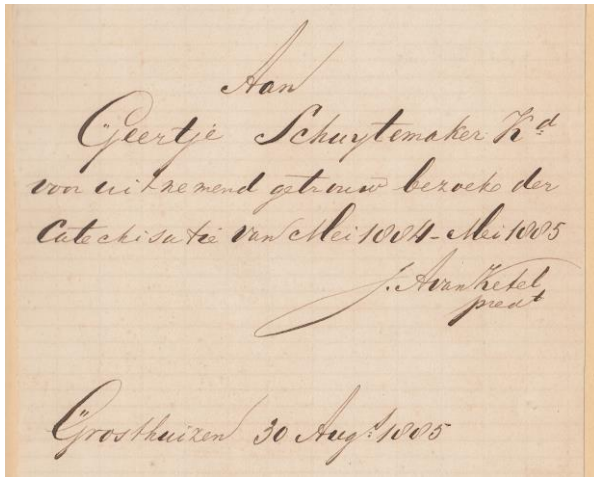 Aan
Geertje Schuytemaker Kd
voor uitnemend getrouw bezoek der
Catechisatie van Mei 1884 - Mei 1885
J. A van Ketel
predt
Grosthuizen 30 Augt 1885